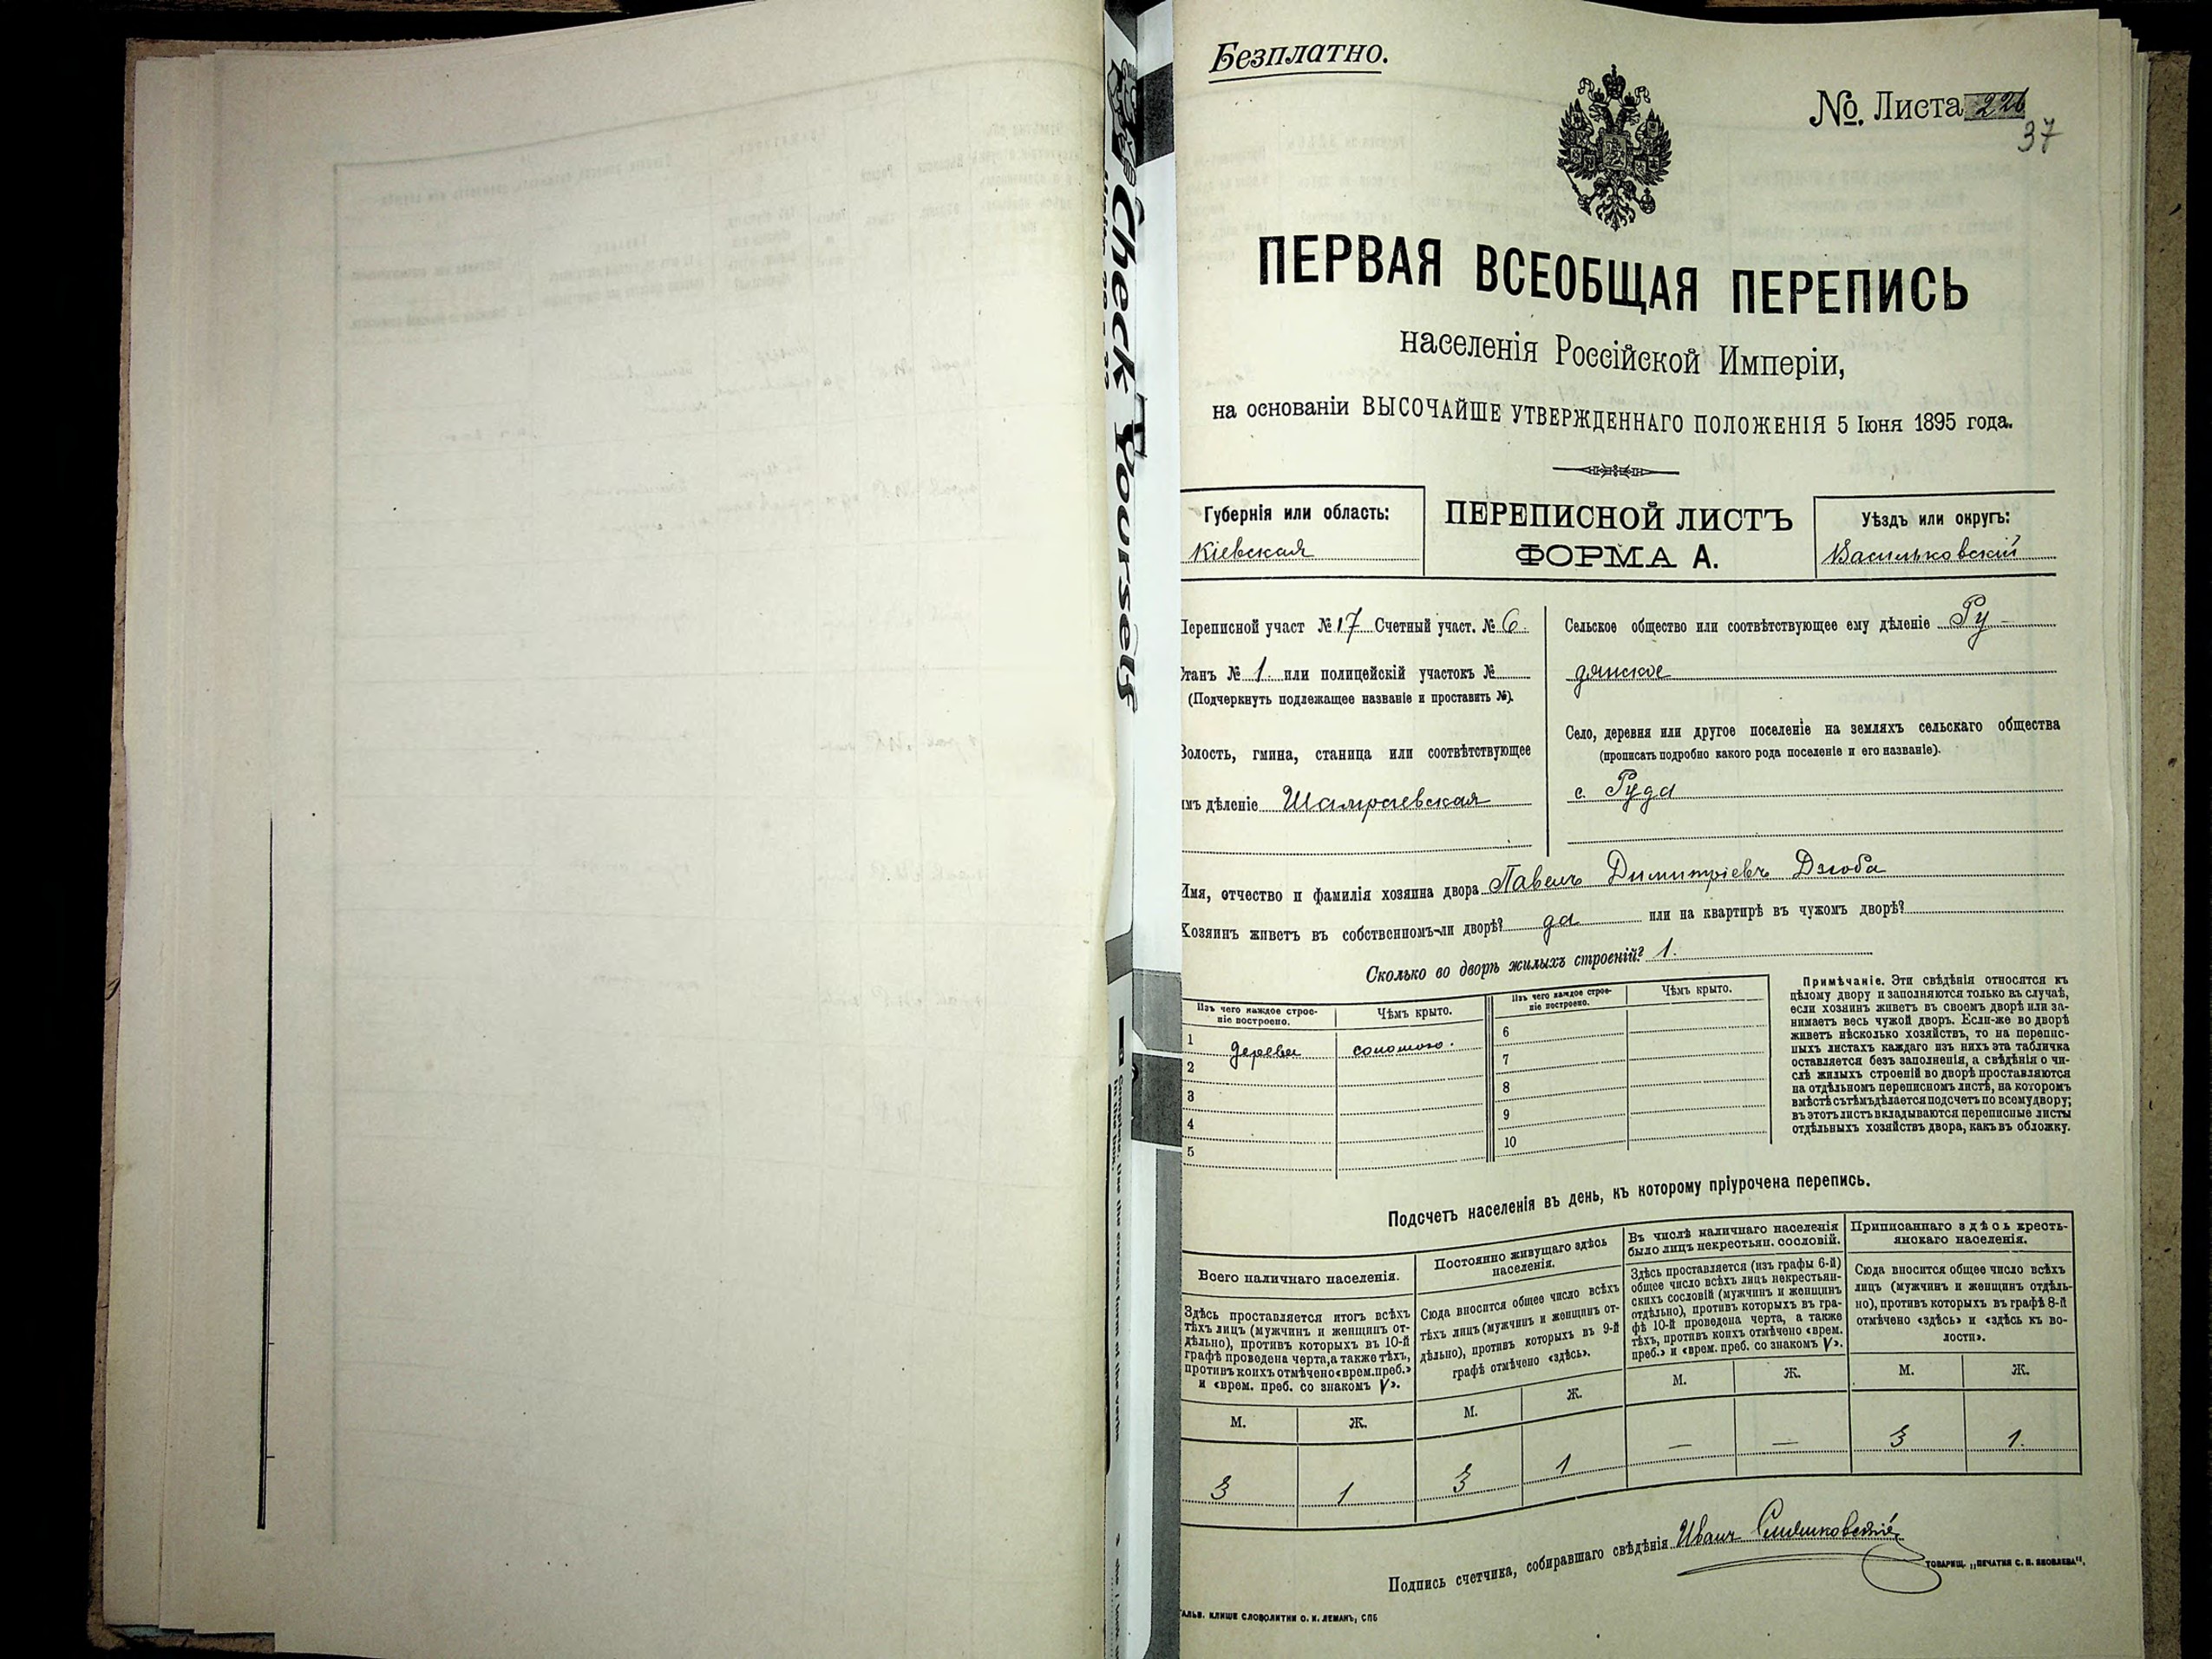 Безплатно.
№. Листа 226
37
ПЕРВАЯ ВСЕОБЩАЯ ПЕРЕПИСЬ
населенія Россійской Имперіи,
на основаніи ВЫСОЧАЙШЕ УТВЕРЖДЕННАГО ПОЛОЖЕНІЯ 5 Іюня 1895 года.
Губернія или область:
Кіевская
ПЕРЕПИСНОЙ ЛИСТЪ
ФОРМА А.
Уѣздъ или округъ:
Васильковскій
Переписной участ №17 Счетный участ. № 6.
Станъ № 1. или полицейскій участокъ №
(Подчеркнуть подлежащее названіе и проставить №).
Волость, гмина, станица или соотвѣтствующее
имъ дѣленіе Шамраевская
Сельское общество или соотвѣтствующее ему дѣленіе Ру-
дянское
Село, деревня или другое поселеніе на земляхъ сельскаго общества
(прописать подробно какого рода поселеніе и его названіе).
с. Руда
Имя, отчество и фамилія хозяина двора Павелъ Димитріевъ Дзюба
Хозяинъ живетъ въ собственномъ-ли дворѣ? да или на квартирѣ въ чужомъ дворѣ?
Сколько во дворѣ жилыхъ строеній? 1.
Изъ чего каждое строе-
ніе построено.
Чѣмъ крыто.
Изъ чего каждое строе-
ніе построено.
Чѣмъ крыто.
1 дерева соломою.
2
3
4
5
6
7
8
9
10
Примѣчаніе. Эти свѣдѣнія относятся къ
цѣлому двору и заполняются только въ случаѣ,
если хозяинъ живетъ въ своемъ дворѣ или за-
нимаетъ весь чужой дворъ. Если-же во дворѣ
живетъ нѣсколько хозяйствъ, то на перепис-
ныхъ листахъ каждаго изъ нихъ эта табличка
оставляется безъ заполненія, а свѣдѣнія о чи-
слѣ жилыхъ строеній во дворѣ проставляются
на отдѣльномъ переписномъ листѣ, на которомъ
вмѣстѣ съ тѣмъ дѣлается подсчетъ по всему двору;
въ этотъ листъ вкладываются переписные листы
отдѣльныхъ хозяйствъ двора, какъ въ обложку.
Подсчетъ населенія въ день, къ которому пріурочена перепись.
Всего наличнаго населенія.
Здѣсь проставляется итогъ всѣхъ
тѣхъ лицъ (мужчинъ и женщинъ от-
дѣльно), противъ которыхъ въ 10-й
графѣ проведена черта, а также тѣхъ,
противъ коихъ отмѣчено «врем. преб.»
и «врем. преб. со знакомъ V».
Постоянно живущаго здѣсь
населенія.
Сюда вносится общее число всѣхъ
тѣхъ лицъ (мужчинъ и женщинъ от-
дѣльно), противъ которыхъ въ 9-й
графѣ отмѣчено «здѣсь».
Въ числѣ наличнаго населенія
было лицъ некрестьян. сословій.
Здѣсь проставляется (изъ графы 6-й)
общее число всѣхъ лицъ некрестьян-
скихъ сословій (мужчинъ и женщинъ
отдѣльно), противъ которыхъ въ гра-
фѣ 10-й проведена черта, а также
тѣхъ, противъ коихъ отмѣчено «врем.
преб.» и «врем. преб. со знакомъ V».
Приписаннаго здѣсь кресть-
янскаго населенія.
Сюда вносится общее число всѣхъ
лицъ (мужчинъ и женщинъ отдѣль-
но), противъ которыхъ въ графѣ 8-й
отмѣчено «здѣсь» и «здѣсь къ во-
лости».
М. Ж. М. Ж. М. Ж. М. Ж.
3 1 3 1 — — 3 1.
Подпись счетчика, собиравшаго свѣдѣнія Иванъ
ТОВАРИЩ. „ПЕЧАТНЯ С. П. ЯКОВЛЕВА“.
ГАЛЬВ. КЛИШЕ СЛОВОЛИТНИ О. И. ЛЕМАНЪ, СПБ
Check Yourself